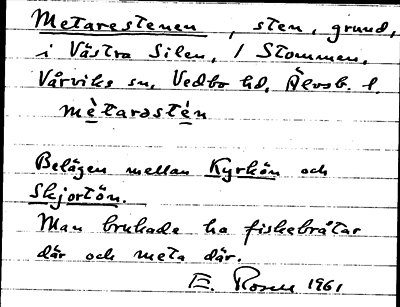 Metarestenen, sten, grund,
i Västra Silen, / Stommen,
Vårviks sn, Vedbo hd, Älvsb. l.
mètarəstén
Belägen mellan Kyrkön och
Skjortön.
Man brukade ha fiskebråtar
där och meta där.
E. Rosen 1961